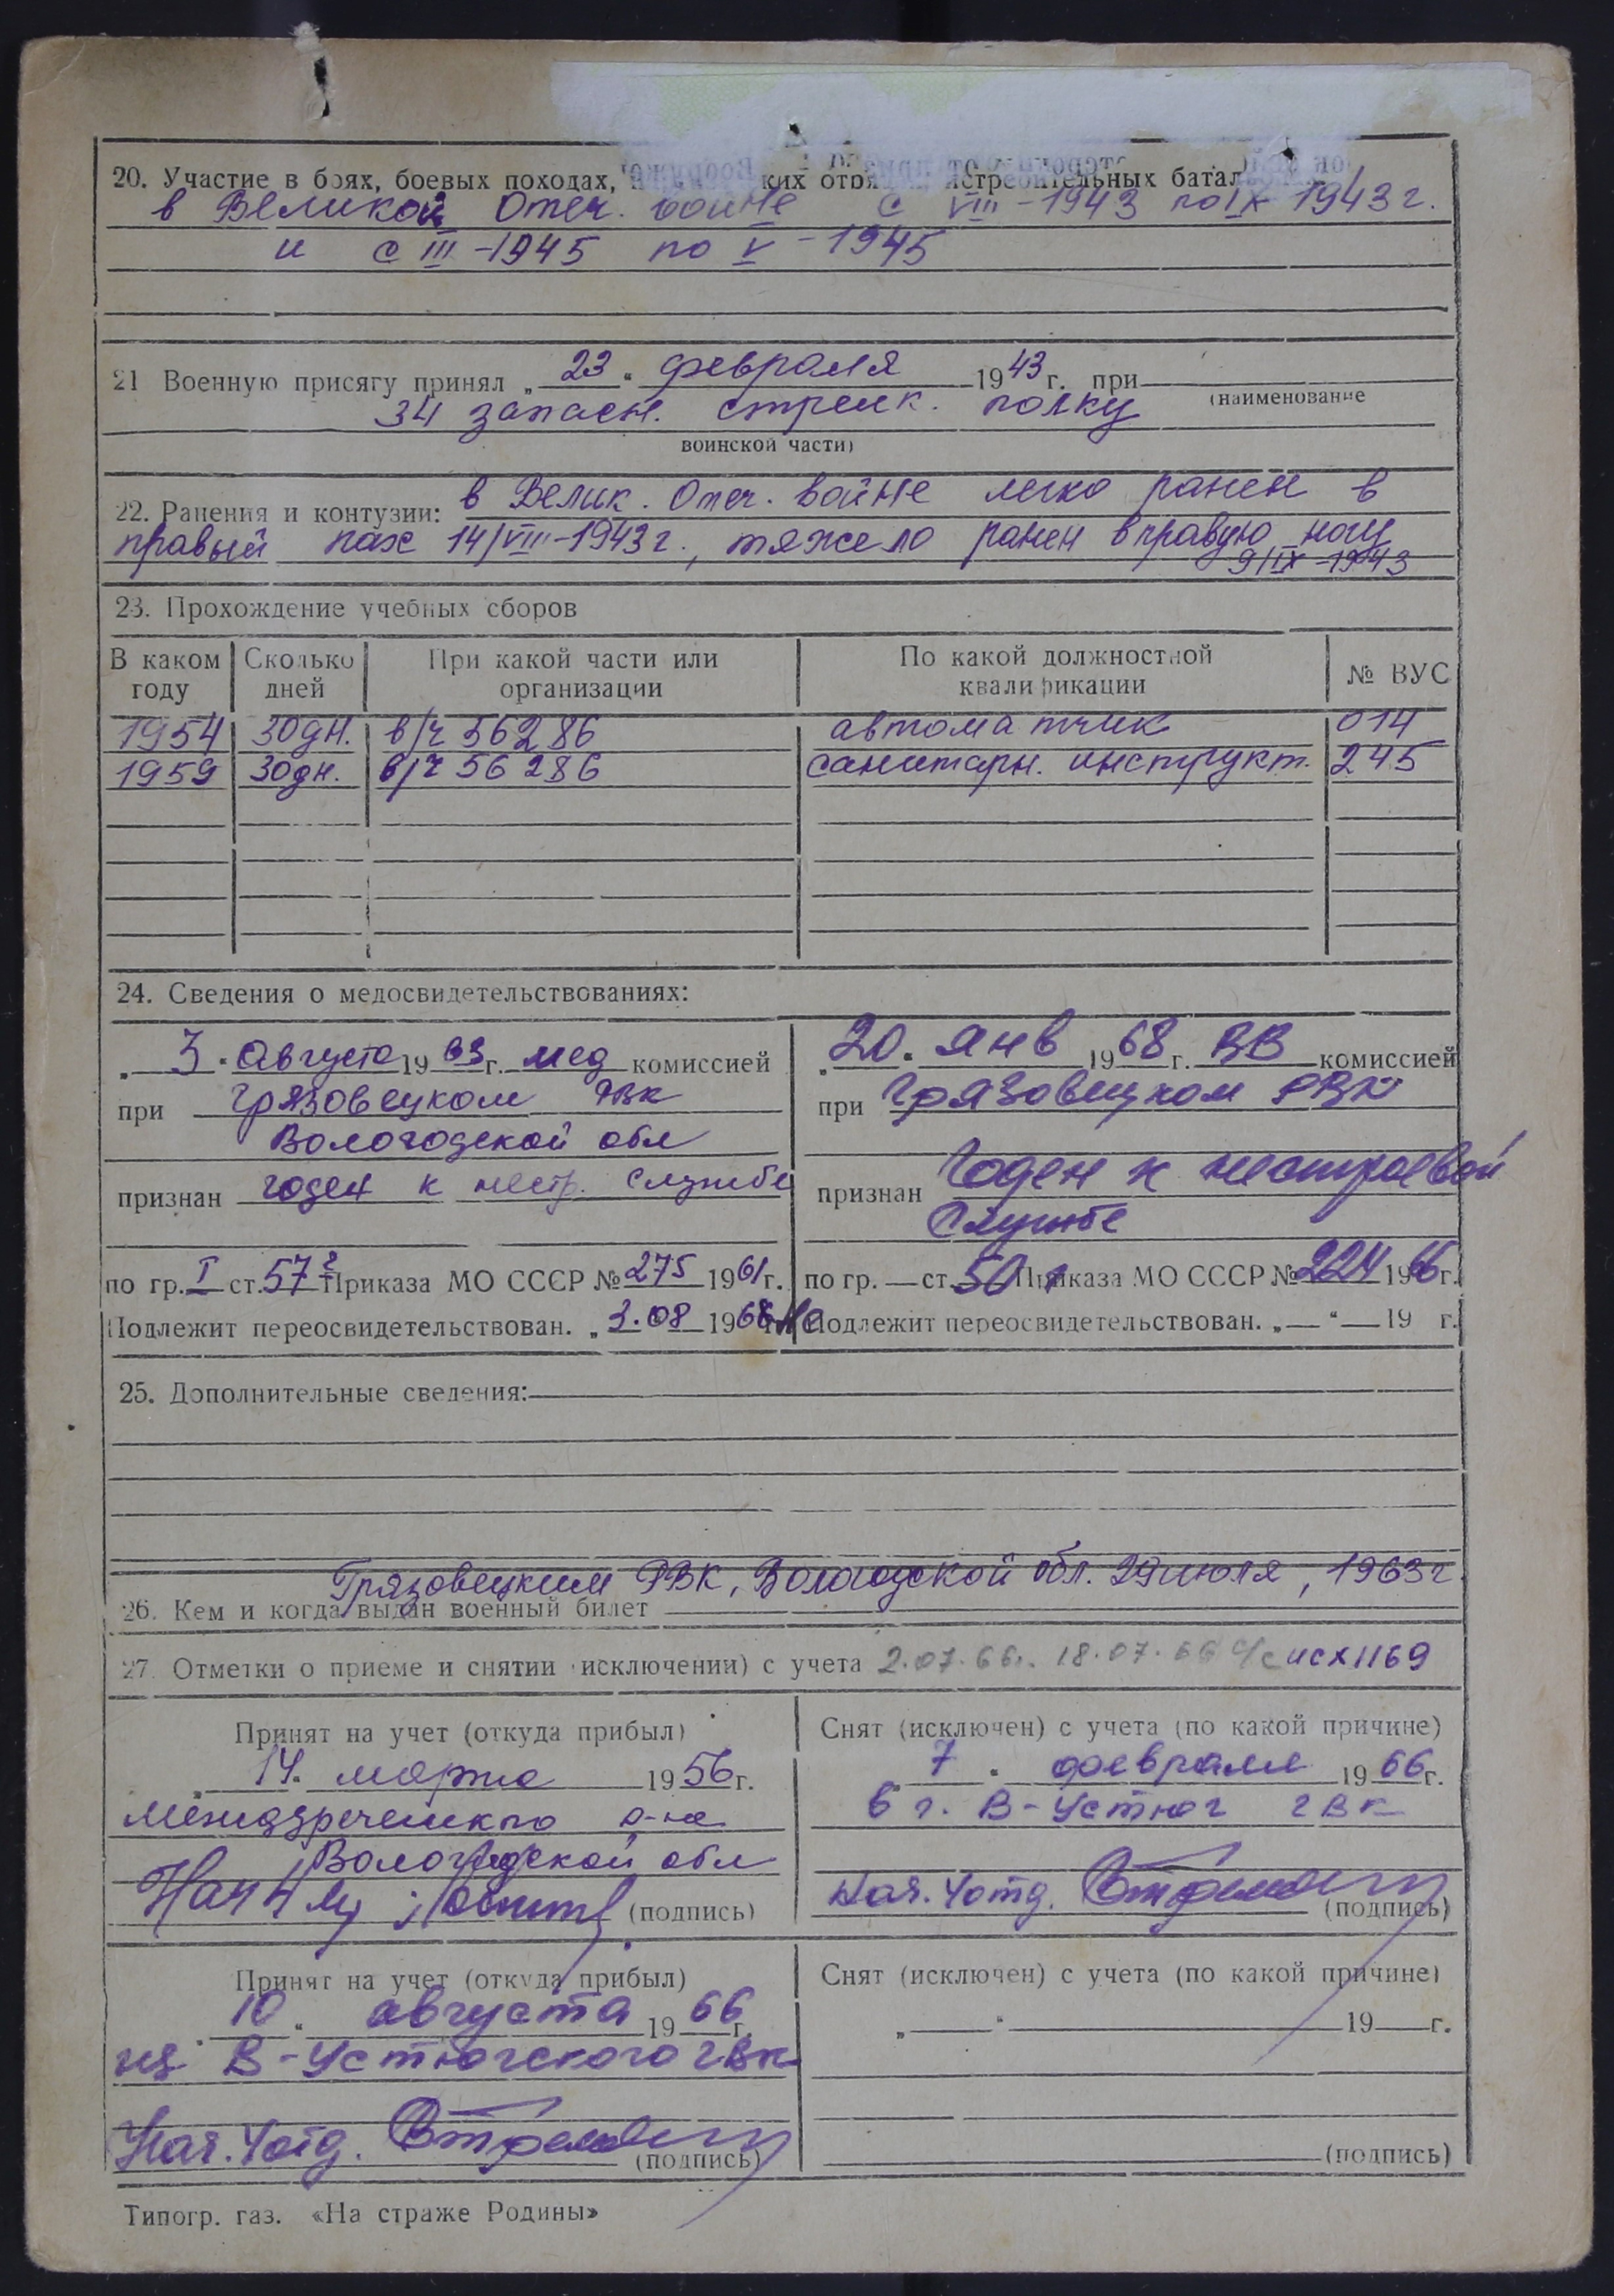 20. Участие в боях, боевых походах, ких отря истребительных батал
в Великой Отеч. войне с VIII-1943 по IX 1943 г.
и с III-1945 по V-1945
21 Военную присягу принял „ 23 “ февраля 1943 г. при
34 запасн. стрелк. полку (наименование
воинской части)
в Велик. Отеч. войне легко ранен в
22. Ранения и контузии:
правый пах 14/VIII-1943 г., тяжело ранен в правую ногу
9/IX-1943
23. Прохождение учебных сборов
В каком году Сколько дней При какой части или организации По какой должностной квалификации № ВУС
1954 30 дн. в/ч 56286 автоматчик 014
1959 30 дн. в/ч 56286 санитарн. инструкт. 245
24. Сведения о медосвидетельствованиях:
„ 3 “ Августа 1963 г. мед комиссией
при Грязовецком РВК
Вологодской обл
признан годен к нестр. службе
по гр. I ст. 57 Приказа МО СССР № 275 1961 г.
Подлежит переосвидетельствован. „ 3.08 1968
„ 20 “ янв 1968 г. ВВ комиссией
при Грязовецком РВК
признан Годен к нестроевой
службе
по гр. — ст. 50 Приказа МО СССР № 224 1966 г.
Не Подлежит переосвидетельствован. „ — “ — 19 г.
25. Дополнительные сведения:
Грязовецким РВК, Вологодской обл. 29 июля, 1963 г.
26. Кем и когда выдан военный билет
27. Отметки о приеме и снятии исключении) с учета 2.07.66. 18.07.66 с/с исх 1169
Принят на учет (откуда прибыл)
14. марта 1956 г.
Междуреченского р-на
Вологодской обл
(подпись)
Снят (исключен) с учета (по какой причине)
7 “ февраля 1966 г.
в г. В-Устюг гвк
Нач. 4 отд. (подпись)
Принят на учет (откуда прибыл)
10 “ августа 1966 г.
из В-Устюгского гвк
Нач. 4 отд.
(подпись)
Снят (исключен) с учета (по какой причине)
„ — “ — 19 — г.
(подпись)
Типогр. газ. «На страже Родины»